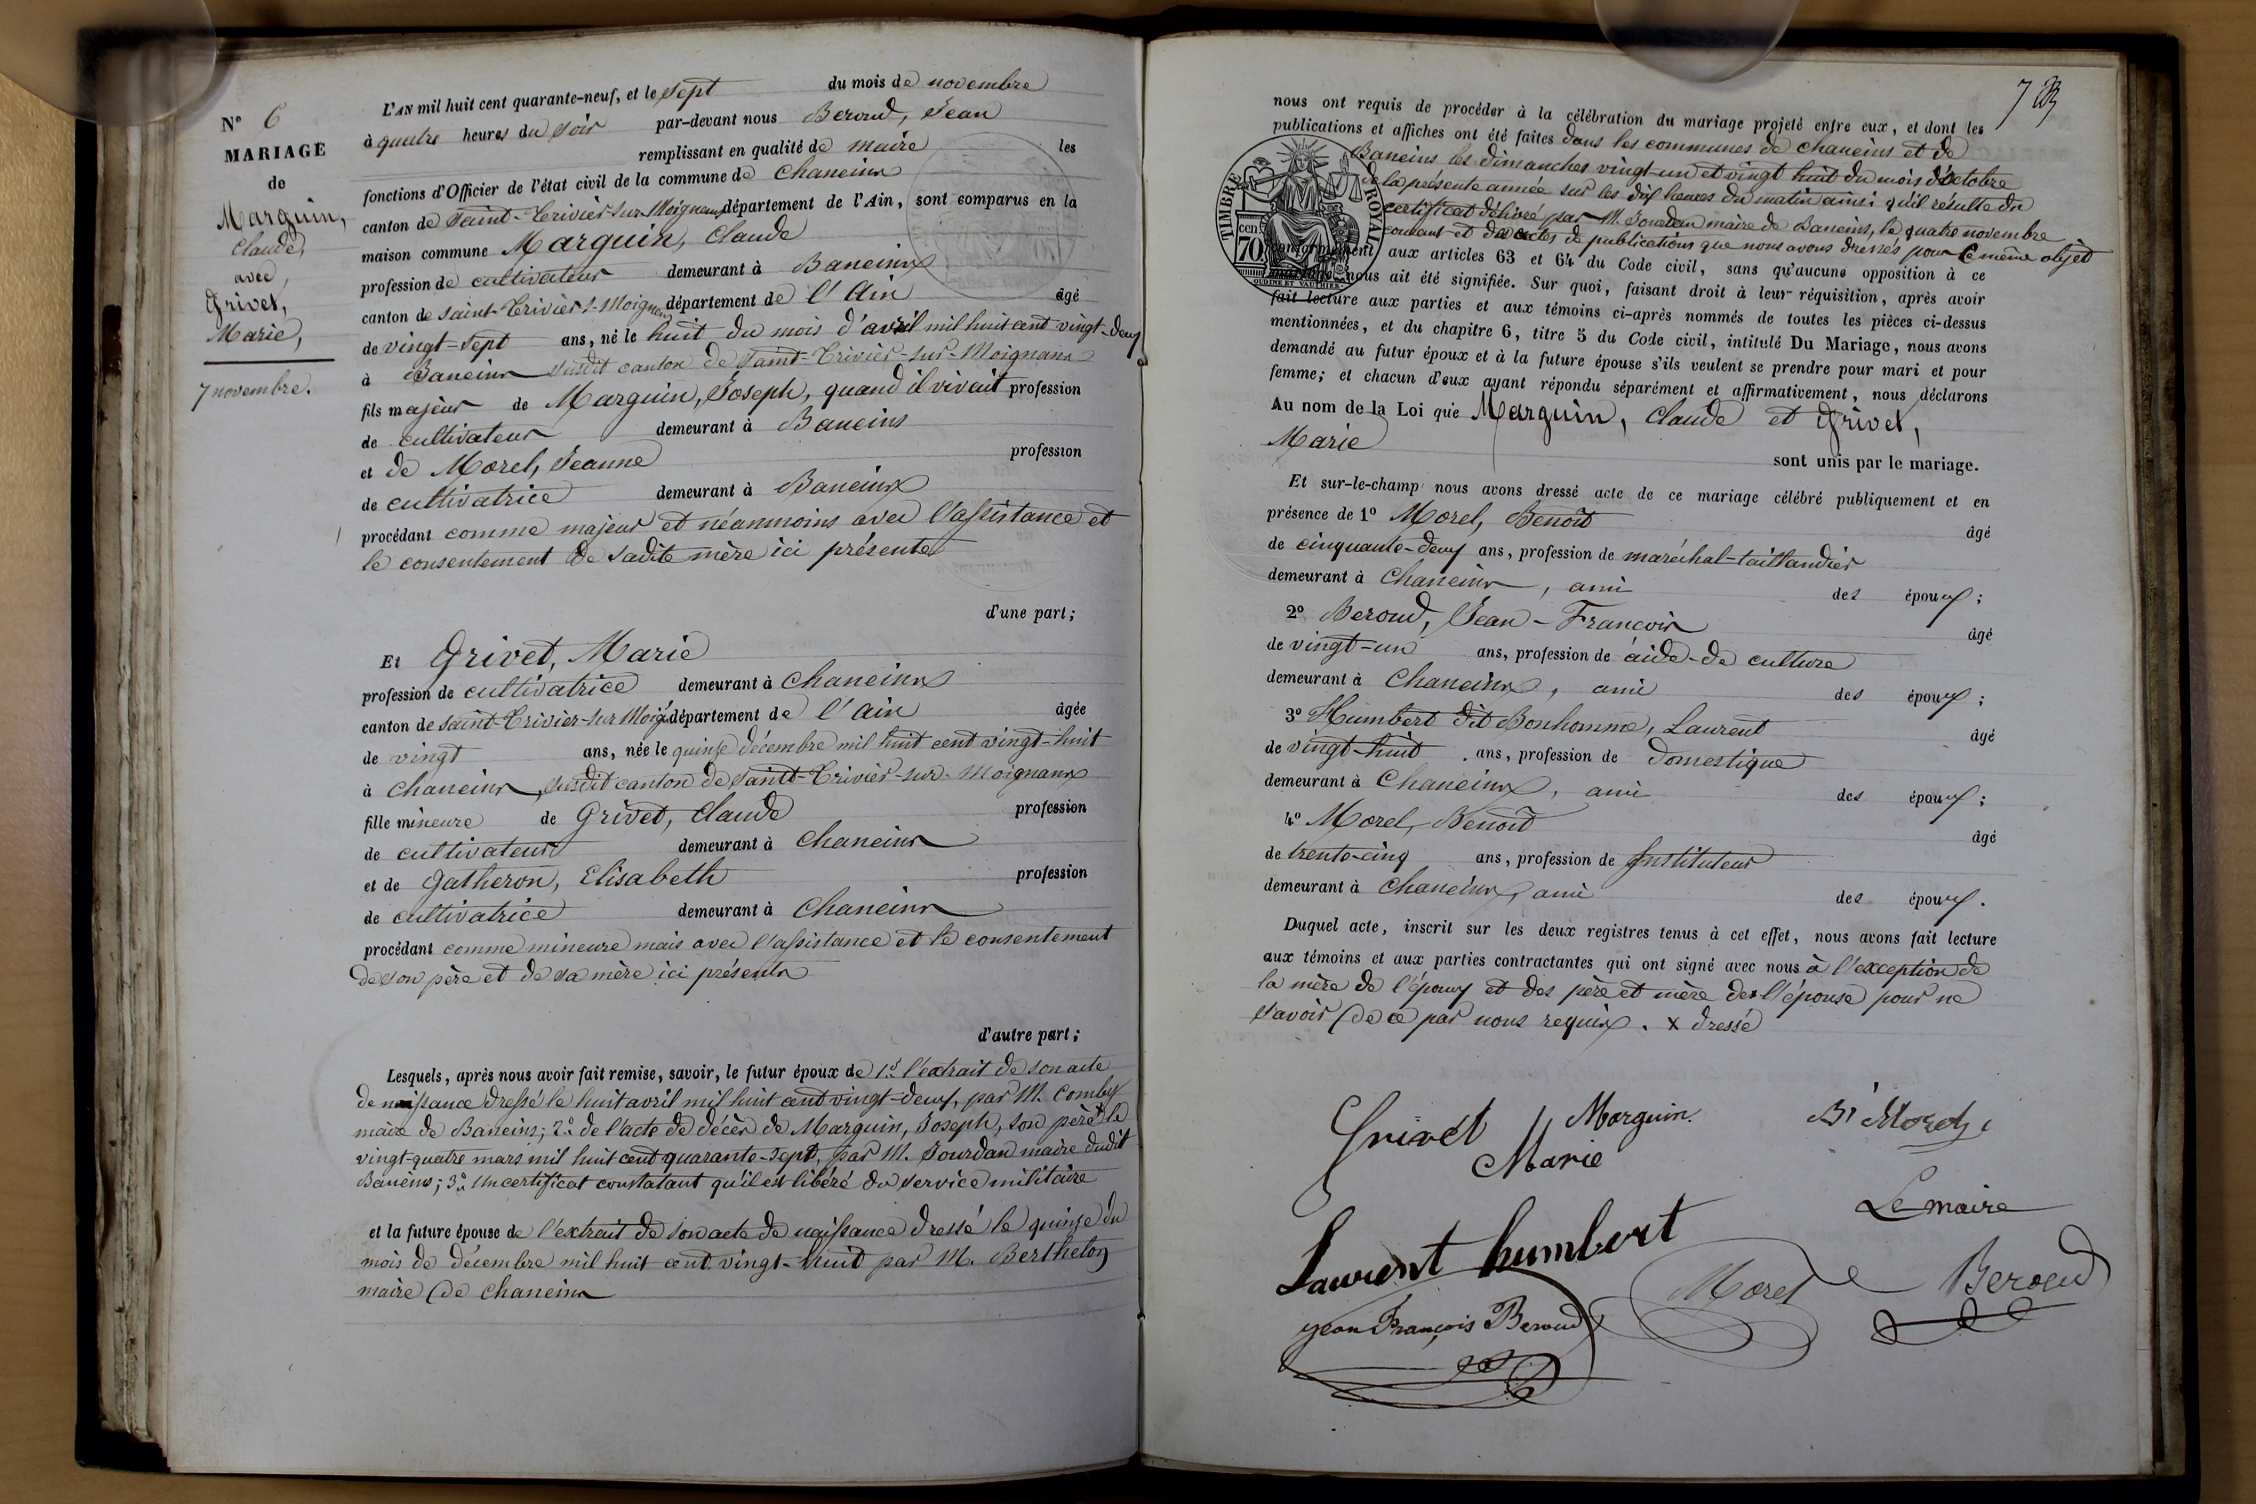 N° 6
MARIAGE
de
Marguin,
Claude,
avec,
Grivet,
Marie,
7 novembre.
L'AN mil huit cent quarante-neuf, et le sept du mois de novembre
à quatre heures du soir par-devant nous Beroud, Jean
remplissant en qualité de maire les
fonctions d'Officier de l'état civil de la commune de Chaneins
canton de Saint-Trivier-sur-Moignans département de l'Ain, sont comparus en la
maison commune Marguin, Claude
profession de cultivateur demeurant à Baneins
canton de Saint-Trivier-s-Moignans département de l'Ain âgé
de vingt-sept ans, né le huit du mois d'avril mil huit cent vingt-deux
à Baneins susdit canton de Saint-Trivier-sur-Moignans
fils majeur de Marguin, Joseph, quand il vivait profession
de cultivateur demeurant à Baneins
et de Morel, Jeanne profession
de cultivatrice demeurant à Baneins
procédant comme majeur et néanmoins avec l'assistance et
le consentement de sadite mère ici présente
d'une part;
Et Grivet, Marie
profession de cultivatrice demeurant à Chaneins
canton de Saint-Trivier-sur Moig. département de l'Ain âgée
de vingt ans, née le quinze décembre mil huit cent vingt-huit
à Chaneins, susdit canton de Saint-Trivier-sur-Moignans
fille mineure de Grivet, Claude profession
de cultivateur demeurant à Chaneins
et de Gatheron, Elisabeth profession
de cultivatrice demeurant à Chaneins
procédant comme mineure mais avec l'assistance et le consentement
de son père et de sa mère ici présents
d'autre part;
Lesquels, après nous avoir fait remise, savoir, le futur époux de 1° l'extrait de son acte
de naissance dressé le huit avril mil huit cent vingt-deux, par M. Combex
maire de Baneins; 2° de l'acte de décès de Marguin, Joseph, son père x le
vingt-quatre mars mil huit cent quarante-sept, par M. Jourdan maire dudit
Baneins; 3° Un certificat constatant qu'il est libéré du service militaire
et la future épouse de l'extrait de son acte de naissance dressé le quinze du
mois de décembre mil huit cent vingt-huit par M. Bertheton
maire de Chaneins
nous ont requis de procéder à la célébration du mariage projeté entre eux, et dont les
publications et affiches ont été faites dans les communes de Chaneins et de
Baneins les dimanches vingt-un et vingt huit du mois d'octobre
de la présente année sur les dix heures du matin ainsi qu'il résulte du
certificat délivré par M. Jourdan maire de Baneins, le quatre novembre
courant et des actes de publications que nous avons dressés pour le même objet
conformément aux articles 63 et 64 du Code civil, sans qu'aucune opposition à ce
nous ait été signifiée. Sur quoi, faisant droit à leur réquisition, après avoir
fait lecture aux parties et aux témoins ci-après nommés de toutes les pièces ci-dessus
mentionnées, et du chapitre 6, titre 5 du Code civil, intitulé Du Mariage, nous avons
demandé au futur époux et à la future épouse s'ils veulent se prendre pour mari et pour
femme; et chacun d'eux ayant répondu séparément et affirmativement, nous déclarons
Au nom de la Loi que Marguin, Claude et Grivet,
Marie
sont unis par le mariage.
Et sur-le-champ nous avons dressé acte de ce mariage célébré publiquement et en
présence de 1° Morel, Benoît âgé
de cinquante-deux ans, profession de maréchal-taillandier
demeurant à Chaneins, ami des époux;
2° Beroud, Jean-François âgé
de vingt-un ans, profession de aide-de culture
demeurant à Chaneins, ami des époux;
3° Humbert dit Bonhomme, Laurent âgé
de vingt-huit ans, profession de domestique
demeurant à Chaneins, ami des époux;
4° Morel, Benoît âgé
de trente-cinq ans, profession de Instituteur
demeurant à Chaneins, ami des époux.
Duquel acte, inscrit sur les deux registres tenus à cet effet, nous avons fait lecture
aux témoins et aux parties contractantes qui ont signé avec nous à l'exception de
la mère de l'époux et des père et mère de l'épouse pour ne
savoir de ce par nous requis. x dressé
TIMBRE ROYAL
70 cent
OUDINE ET VAUTHIER
Grivet Marguin. Bt Morel
Marie
Le maire
Laurent humbert
Morel Beroud
jean François Beroud